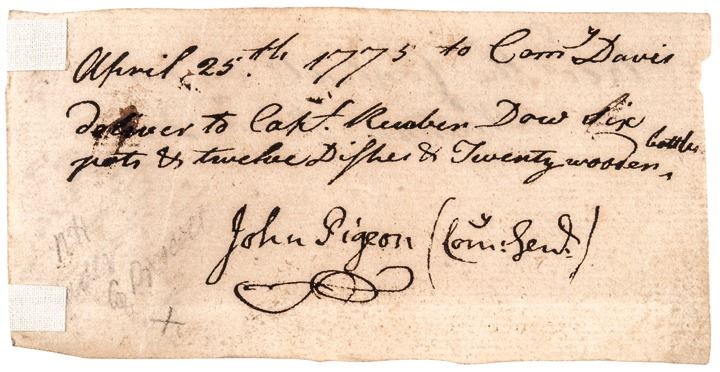 April 25th 1775 to Comy Davis
deliver to Capt. Reuben Dow Six
pots & twelve Dishes & Twenty wooden bottles
John Pigeon (Comy: Genl.)